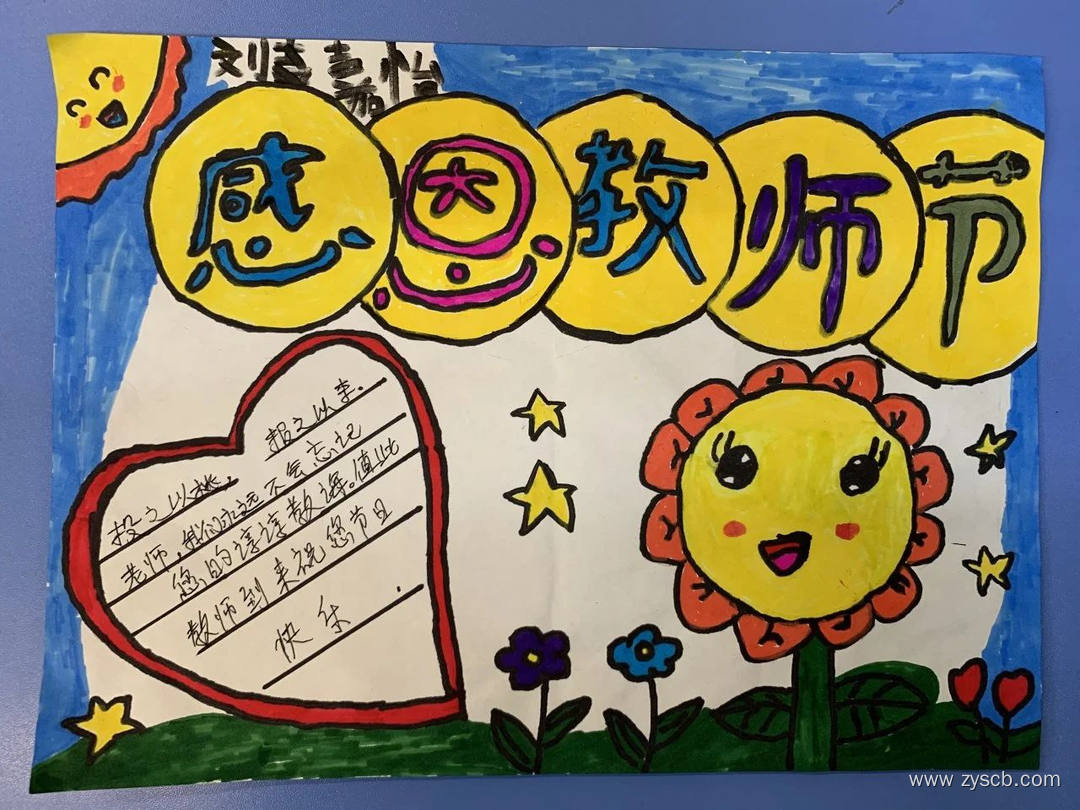 刘嘉怡
感恩教师节
投之以桃，报之以李。
老师，我们永远不会忘记
您的谆谆教诲。值此
教师到来祝您节日
快乐.
www.zyscb.com